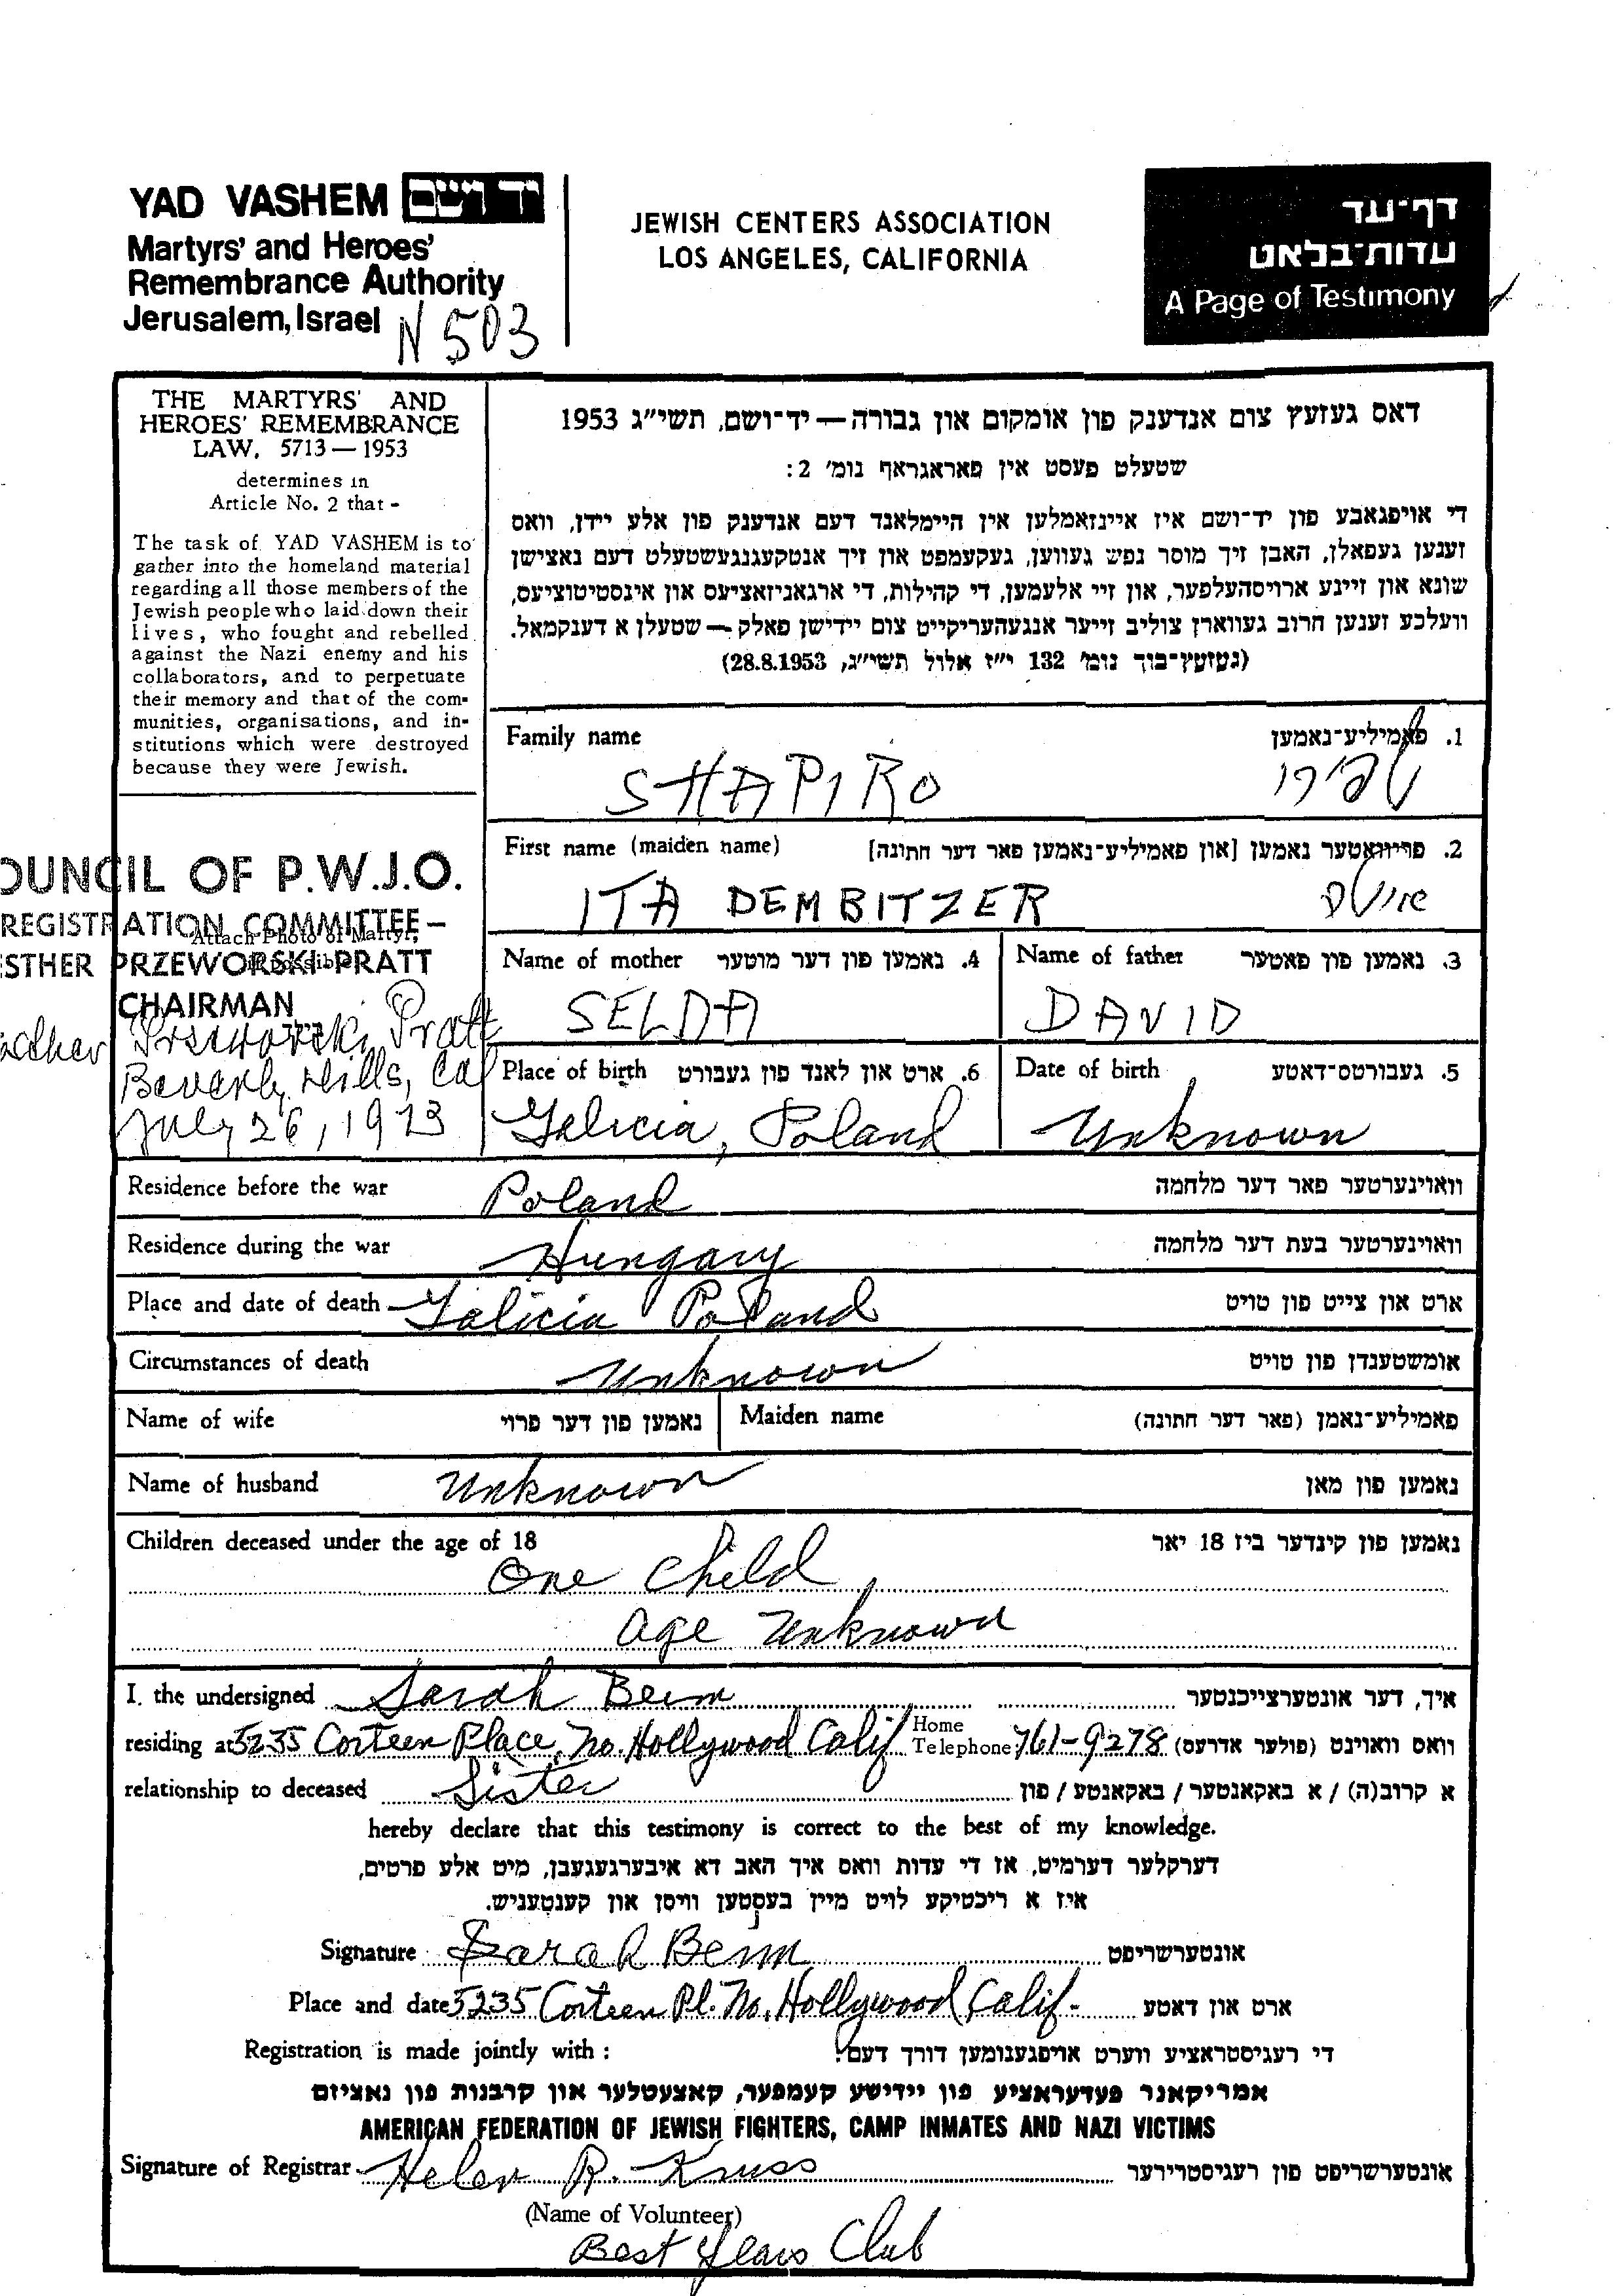 YAD VASHEM יד ושם
Martyrs' and Heroes'
Remembrance Authority
Jerusalem, Israel
N 503
JEWISH CENTERS ASSOCIATION
LOS ANGELES, CALIFORNIA
דף-עד
עדות-בלאט
A Page of Testimony
THE MARTYRS' AND
HEROES' REMEMBRANCE
LAW, 5713 — 1953
determines in
Article No. 2 that -
The task of YAD VASHEM is to
gather into the homeland material
regarding all those members of the
Jewish people who laid down their
lives, who fought and rebelled
against the Nazi enemy and his
collaborators, and to perpetuate
their memory and that of the com-
munities, organisations, and in-
stitutions which were destroyed
because they were Jewish.
דאס געזעץ צום אנדענק פון אומקום און גבורה — יד-ושם, תשי"ג 1953
שטעלט פעסט אין פאראגראף נומ' 2:
די אויפגאבע פון יד-ושם איז איינזאמלען אין היימלאנד דעם אנדענק פון אלע יידן, וואס
זענען געפאלן, האבן זיך מוסר נפש געווען, געקעמפט און זיך אנטקעגנגעשטעלט דעם נאצישן
שונא און זיינע ארויסהעלפער, און זיי אלעמען, די קהילות, די ארגאניזאציעס און אינסטיטוציעס,
וועלכע זענען חרוב געווארן צוליב זייער אנגעהעריקייט צום יידישן פאלק — שטעלן א דענקמאל.
(געזעץ-בוך נומ' 132 י"ז אלול תשי"ג, 28.8.1953)
OUNCIL OF P.W.J.O.
REGISTRATION COMMITTEE —
Attach Photo of Martyr,
STHER PRZEWORSKI-PRATT
CHAIRMAN
Przeworski Pratt
Beverly Hills, Cal
July 26, 1973
Family name 1. פאמיליע-נאמען
SHAPIRO שפירו
First name (maiden name) 2. פריוואטער נאמען [און פאמיליע-נאמען פאר דער חתונה]
ITA DEMBITZER
Name of mother 4. נאמען פון דער מוטער Name of father 3. נאמען פון פאטער
SELDA DAVID
Place of birth 6. ארט און לאנד פון געבורט Date of birth 5. געבורטס-דאטע
Galicia, Poland Unknown
Residence before the war Poland וואוינערטער פאר דער מלחמה
Residence during the war Hungary וואוינערטער בעת דער מלחמה
Place and date of death Galicia Poland ארט און צייט פון טויט
Circumstances of death Unknown אומשטענדן פון טויט
Name of wife נאמען פון דער פרוי Maiden name פאמיליע-נאמן (פאר דער חתונה)
Name of husband Unknown נאמען פון מאן
Children deceased under the age of 18 נאמען פון קינדער ביז 18 יאר
One Child
Age Unknown
I, the undersigned Sarah Beim איך, דער אונטערצייכנטער
residing at 5235 Corteen Place, No. Hollywood Calif Home Telephone 761-9278 וואס וואוינט (פולער אדרעס)
relationship to deceased Sister א קרוב(ה) / א באקאנטער / באקאנטע / פון
hereby declare that this testimony is correct to the best of my knowledge.
דערקלער דערמיט, אז די עדות וואס איך האב דא איבערגעגעבן, מיט אלע פרטים,
איז א ריכטיקע לויט מיין בעסטען וויסן און קענטעניש.
Signature Sarah Beim אונטערשריפט
Place and date 5235 Corteen Pl. No. Hollywood Calif- ארט און דאטע
Registration is made jointly with : די רעגיסטראציע ווערט אויפגענומען דורך דעם:
אמריקאנר פעדעראציע פון יידישע קעמפער, קאצעטלער און קרבנות פון נאציזם
AMERICAN FEDERATION OF JEWISH FIGHTERS, CAMP INMATES AND NAZI VICTIMS
Signature of Registrar Helen R. Kruss אונטערשריפט פון רעגיסטרירער
(Name of Volunteer)
Best Years Club